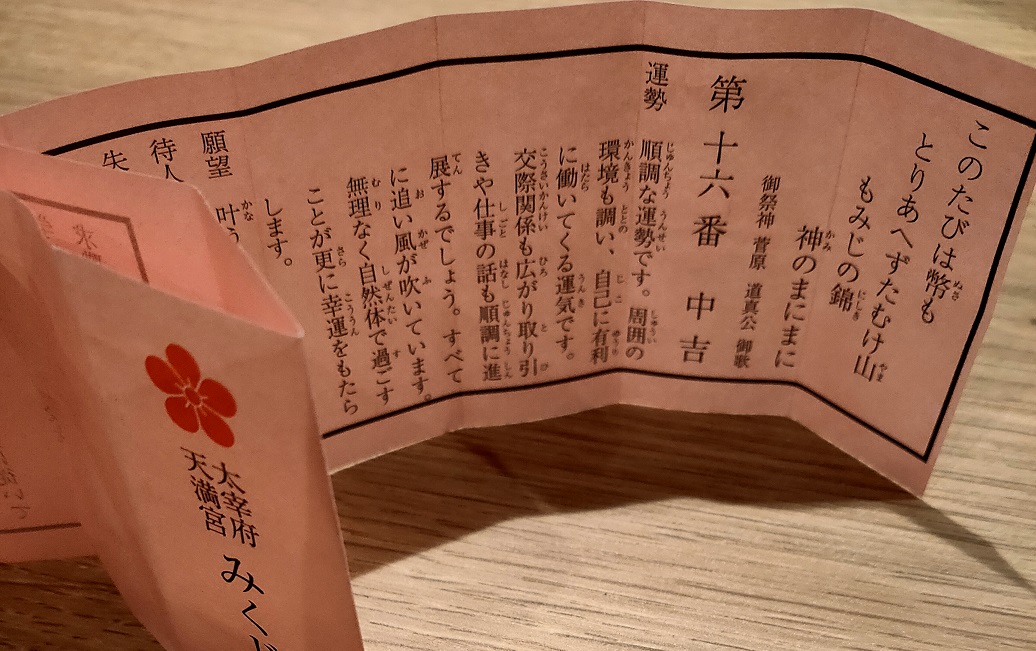 このたびは幣も
とりあへずたむけ山
もみじの錦
神のまにまに
御祭神 菅原 道真公 御歌
第十六番 中吉
運勢
順調な運勢です。周囲の
環境も調い、自己に有利
に働いてくる運気です。
交際関係も広がり取り引
きや仕事の話も順調に進
展するでしょう。すべて
に追い風が吹いています。
無理なく自然体で過ごす
ことが更に幸運をもたら
します。
願望 叶う
待人
失
太宰府
天満宮
みくじ